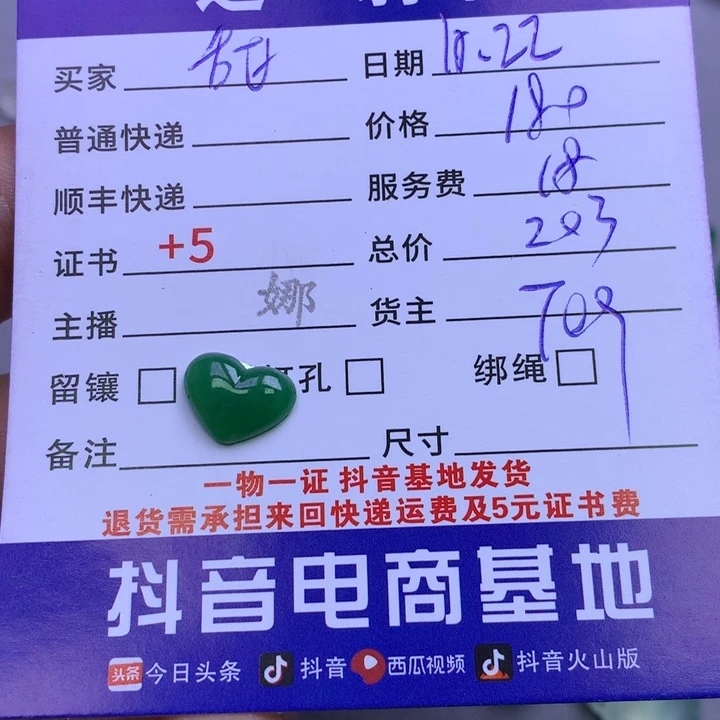 买家 日期 10.22
普通快递 价格 180
顺丰快递 服务费 18
证书 +5 总价 203
主播 娜 货主 709
留镶 打孔 绑绳
备注 尺寸
一物一证 抖音基地发货
退货需承担来回快递运费及5元证书费
抖音电商基地
头条 今日头条 抖音 西瓜视频 抖音火山版